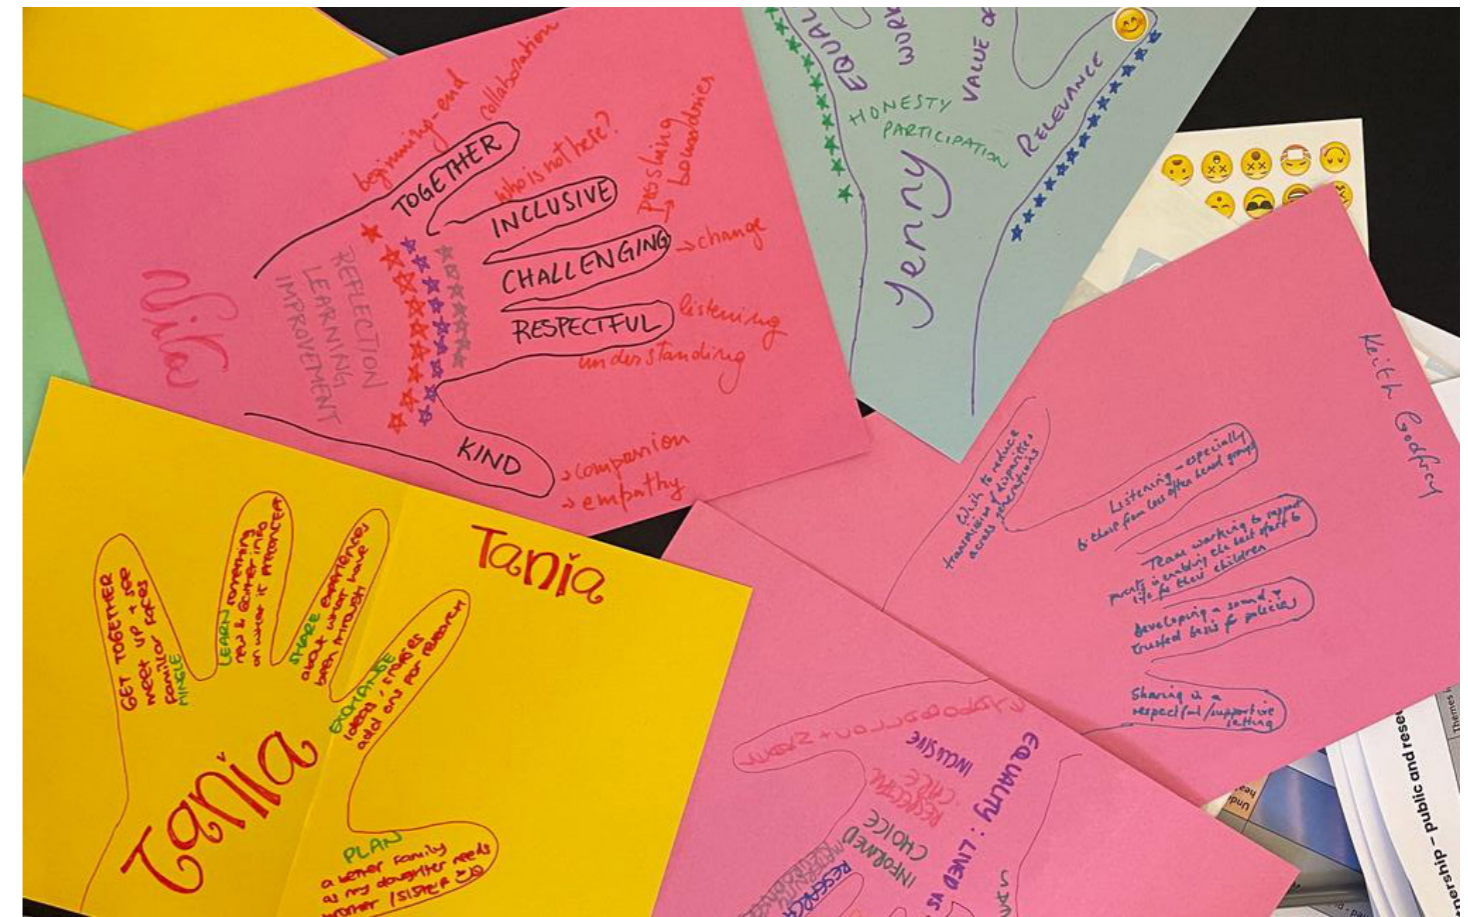 beginning-end
collaboration
TOGETHER
who is not here?
INCLUSIVE
pushing
→ boundaries
CHALLENGING
→ change
RESPECTFUL
listening
understanding
KIND
→ compassion
→ empathy
REFLECTION
LEARNING
IMPROVEMENT
Nika
EQUAL
WORK
VALUE OF
HONESTY
PARTICIPATION
RELEVANCE
Jenny
Keith Godfrey
Wish to reduce
transmission of disparities
across generations
Listening - especially
to those from less often heard groups
Team working to support
parents in enabling the best start to
life for their children
Developing a sound +
trusted basis for policies
Sharing in a
respectful/supportive
setting
Tania
GET TOGETHER
meet up + see
familiar faces
MINGLE
LEARN something
new & gather info
on what it
SHARE experiences
about what have
been through
EXCHANGE
ideas, stories
add ons for research
Tania
PLAN
a better family
as my daughter needs
brother / sister
EQUALITY: LIVED VS
INCLUSIVE
RESPECTFUL
CARE
INFORMED
CHOICE
RESEARCH
Themes
nership – public and resea